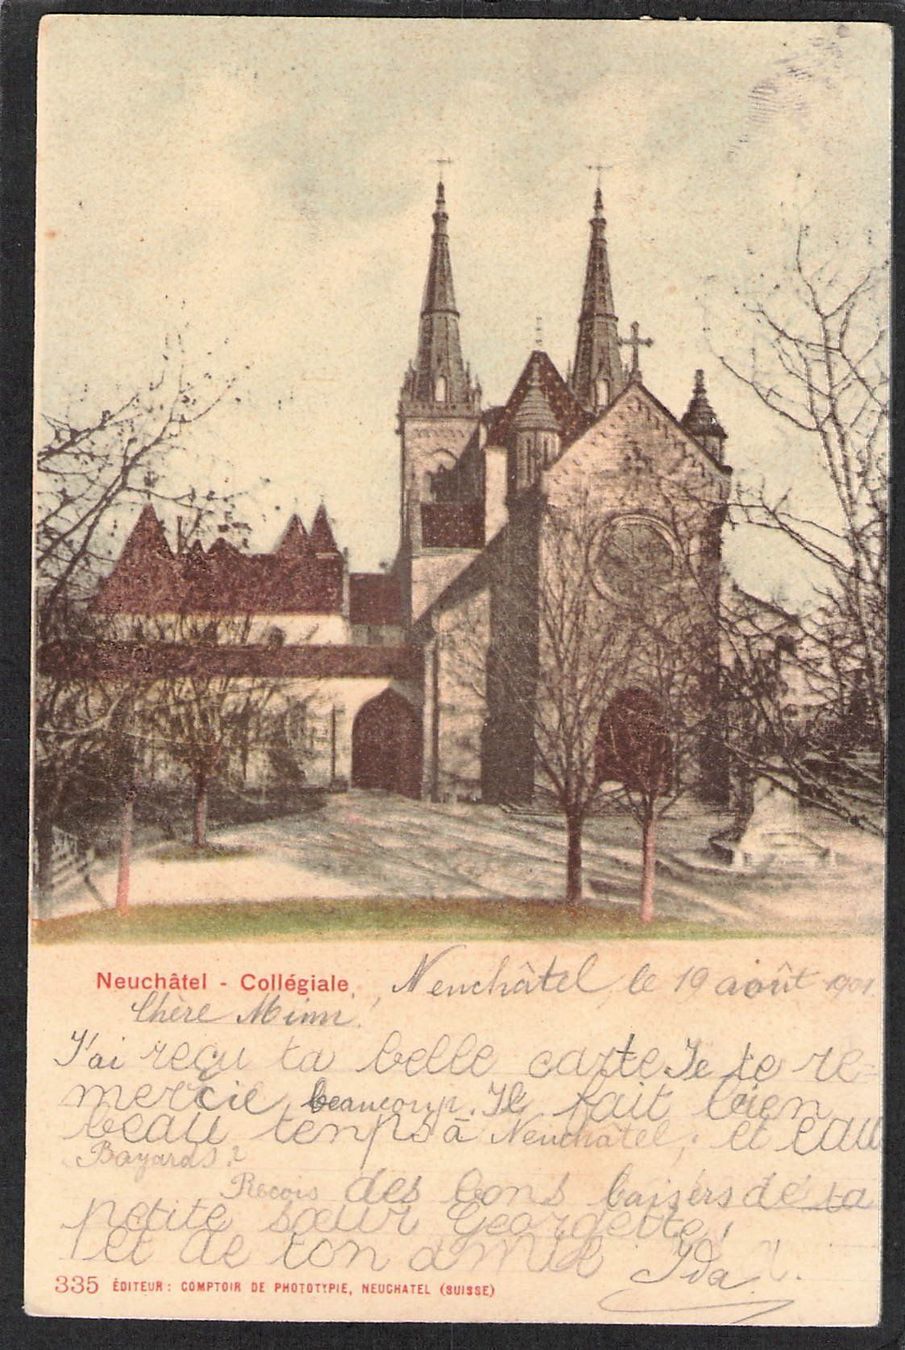 Neuchâtel - Collégiale. Neuchâtel, le 19 août 1901.
Chère Mimi,
J'ai reçu ta belle carte. Je te re-
mercie beaucoup. Il fait bien
beau temps à Neuchâtel, et eau
Bayards?
Recois des bons baisers de ta
petite sœur Georgette!
et de ton amie Ida!
335 ÉDITEUR: COMPTOIR DE PHOTOTYPIE, NEUCHATEL (SUISSE)